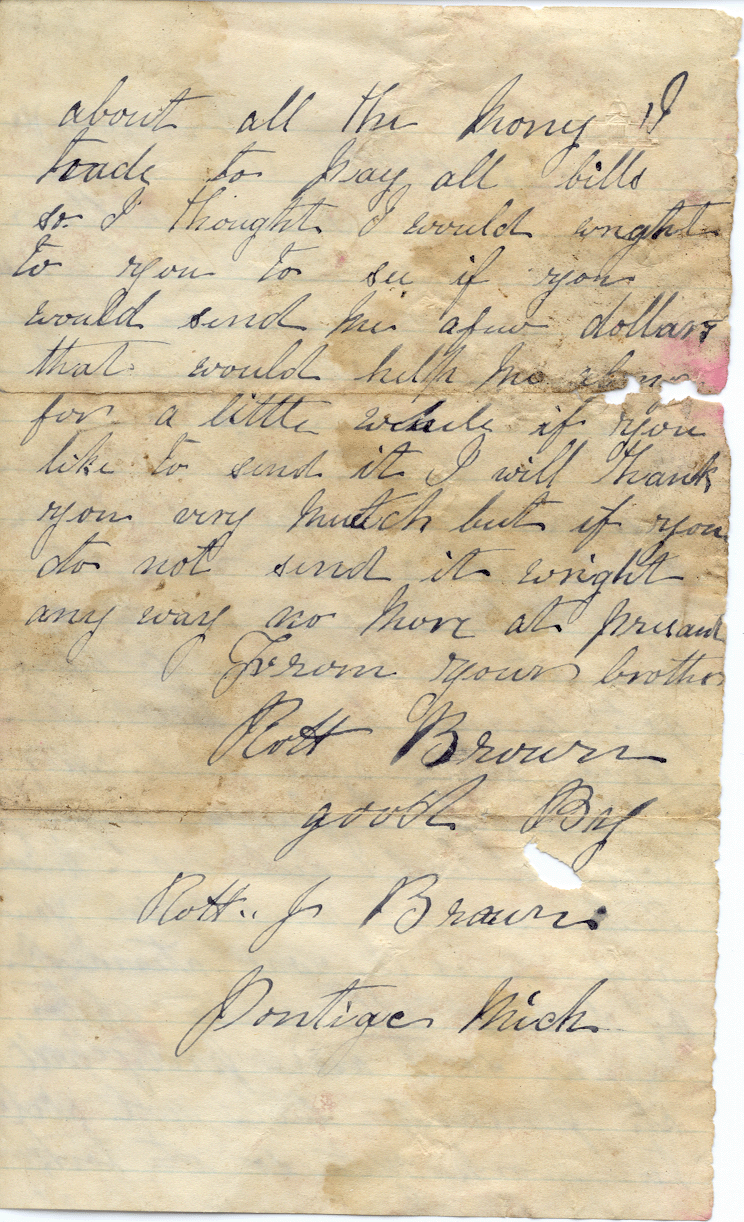 about all the Mony I
to pay all bills
so I thought I would wright
to you to see if you
would send me afew dollars
that would help me along
for a little while if you
like to send it I will thank
you very mutch but if you
do not send it wright
any way no More at presant
From your brother
Robt Brown
good By
Robt.. J Brown
Pontiac Mich